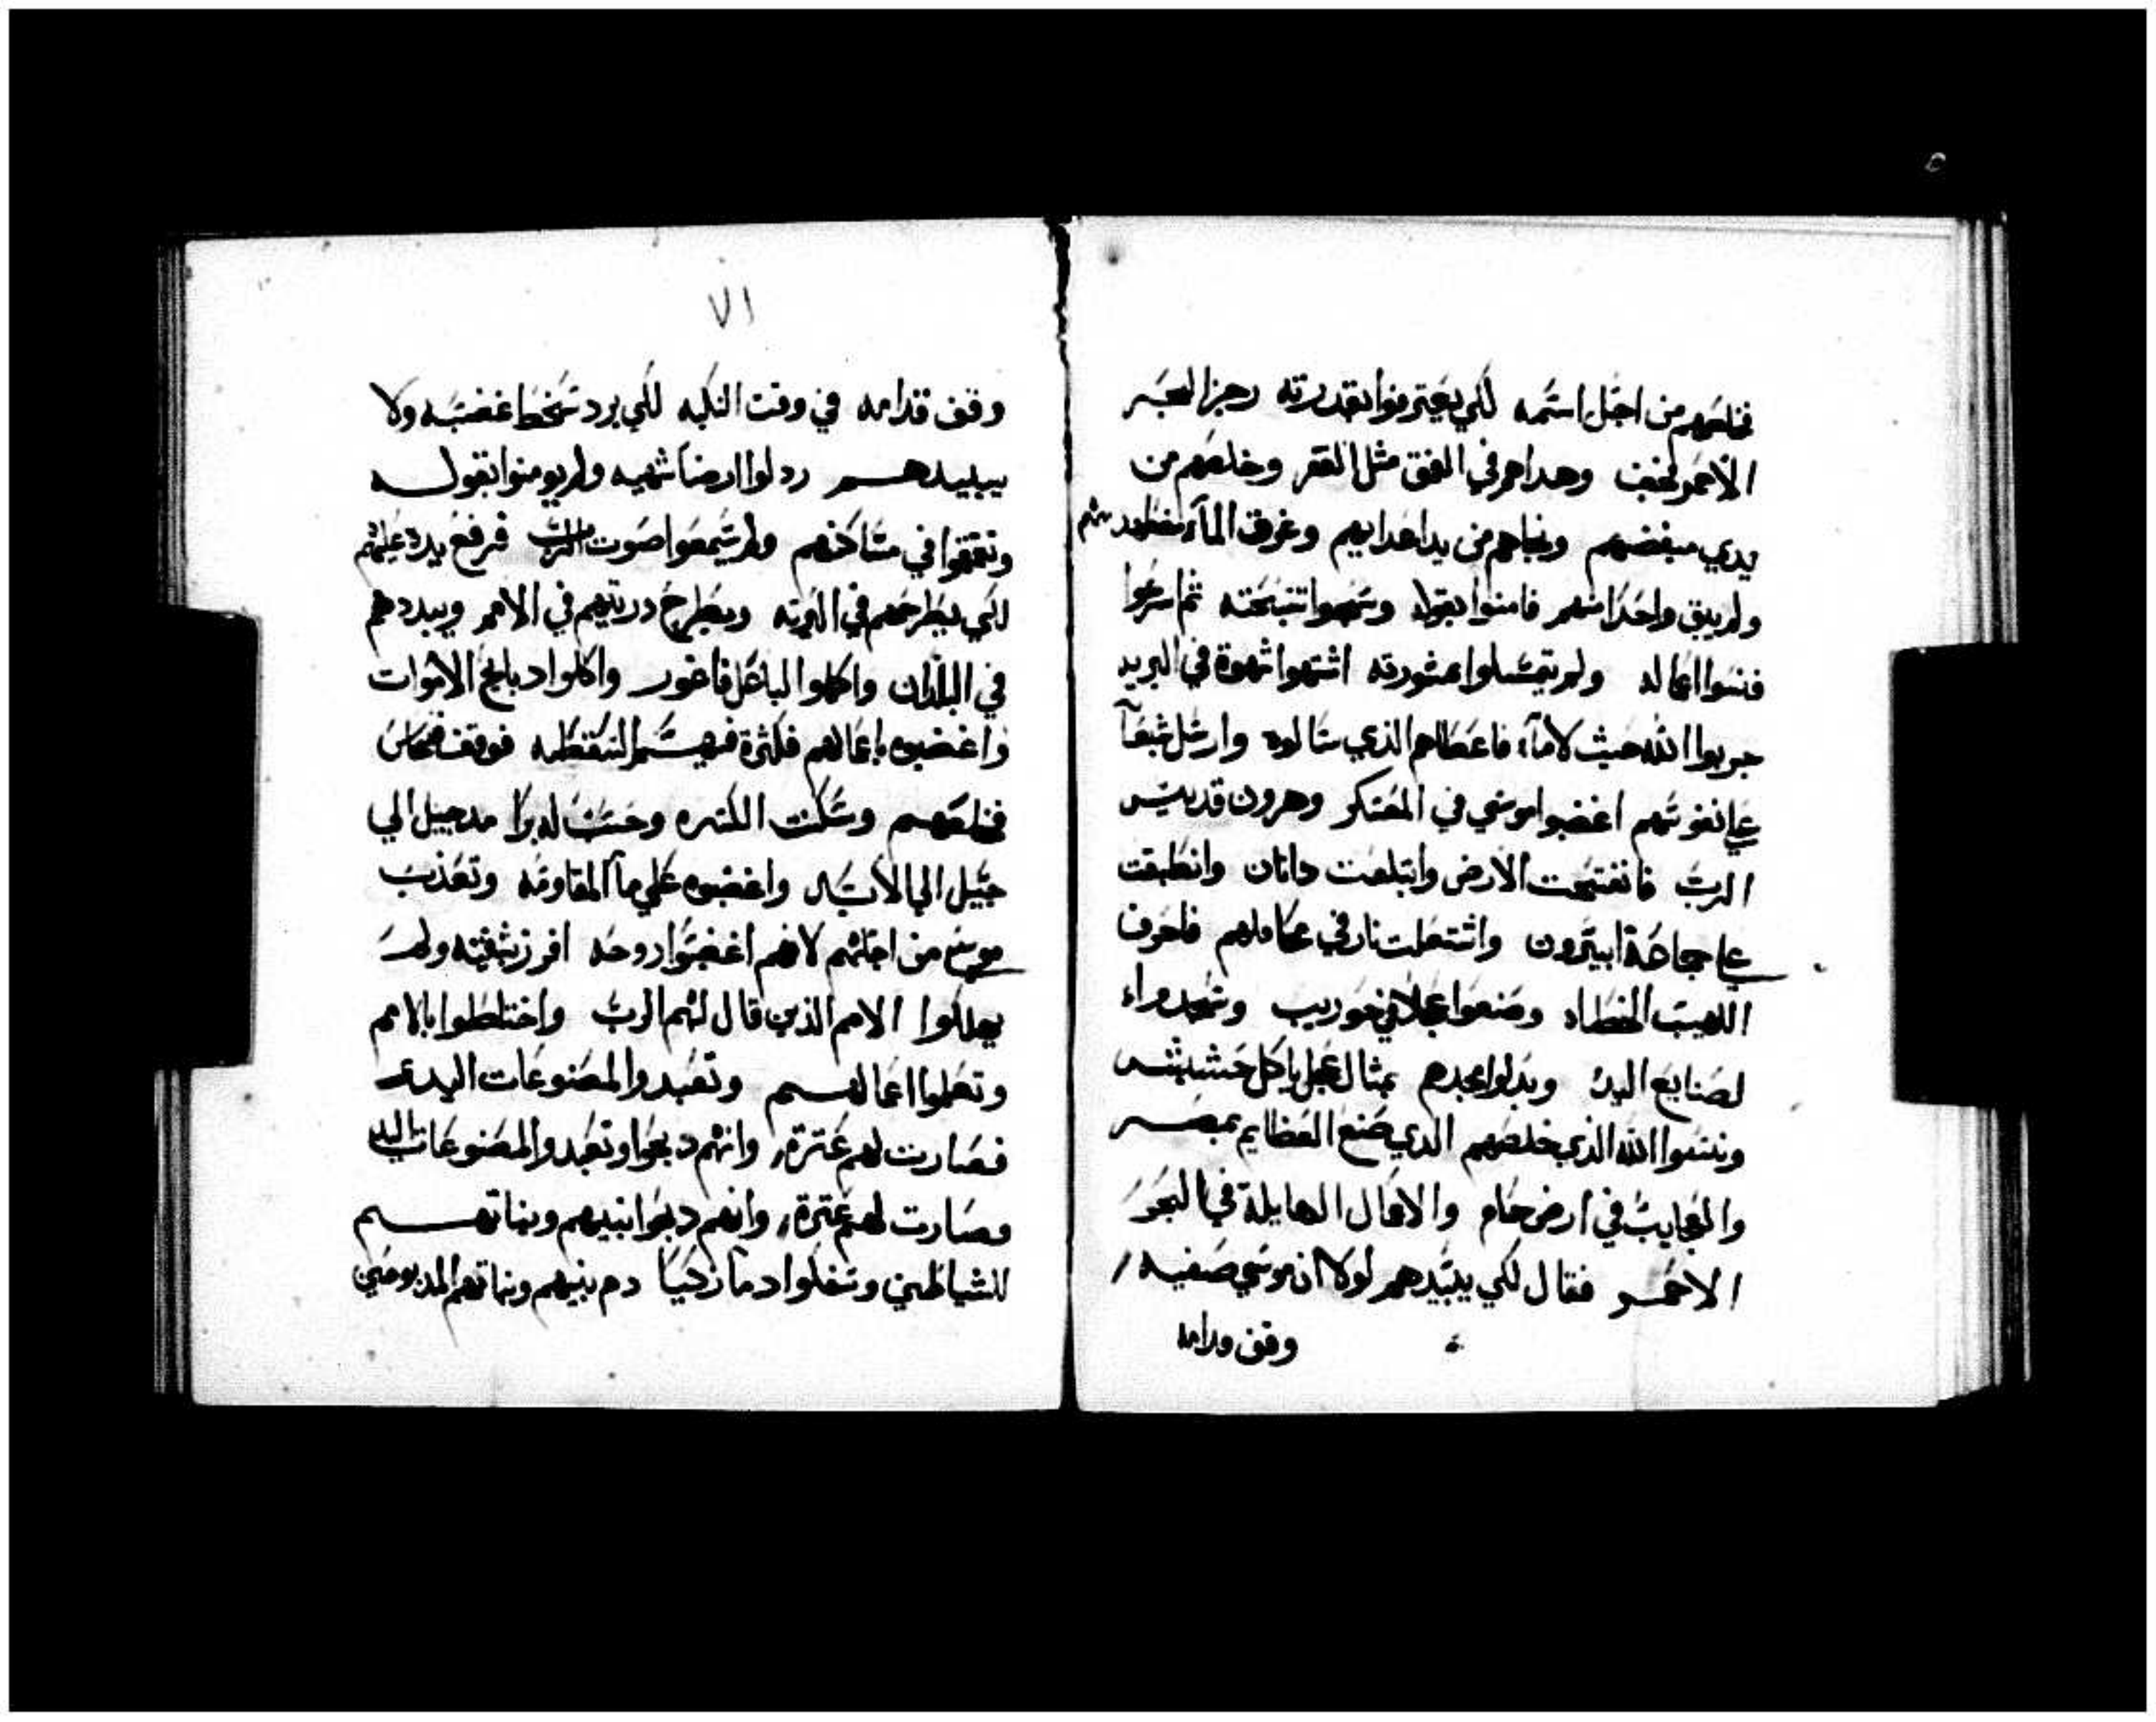 فخلصهم من اجل اسمه لكي يعترفوا بقدرته رجز البحر
الاحمر فجف وهداهم في العمق مثل القفر وخلصهم من
يدي مبغضهم ونجاهم من يد اعدايهم وغرق المآء مضطهديهم
ولم يبق واحدا منهم فامنوا بقوله وسبحوا تسبحته ثم اسرعوا
فنسوا اعماله ولم يتمسلوا بمشورته اشتهوا شهوة في البريه
جربوا الله حيث لا مآء فاعطاهم الذي سالوه وارسل شبعآ
علي نفوسهم اغضبوا موسي في المعسكر وهرون قديس
الرب فانفتحت الارض وابتلعت داثان وانطبقت
علي جماعة ابيرون واشتعلت نار في محاملهم فاحرق
اللهيب الخطاه وصنعوا عجلا في حوريب وسجدوا
لصنايع اليد وبدلوا مجدهم بمثال عجل ياكل حشيش
ونسوا الله الذي خلصهم الدي صنع العظايم بمصر
والعجايب في ارض حام والافعال الهايلة في البحر
الاحمر فقال لكي يبيدهم لولا ان موسي صفيه
وقف قدامه
٧١
وقف قدامه في وقت النكبه لكي يرد سخط غضبه ولا
يبيدهم ردلوا ارضا شهيه ولم يومنوا بقوله
وتقمقموا في مساكنهم ولم يسمعوا صوت الرب فرفع يده عليهم
لكي يطرحهم في البريه ويطرح دريتهم في الامم ويبددهم
في البلدان واكملوا لباعل فاغور واكلوا دبايح الاموات
واغضبوه باعمالهم فكثرة فيهم السقطه فوقف فنحاس
فخلصهم وسكنت الكسره وحسب له برا من جيل الي
جيل الي الابد واغضبوه علي مآ المقاومه وتعذب
موسي من اجلهم لانهم اغضبوا روحه افرز بشفتيه ولم
يهلكوا الامم الذين قال لهم الرب واختلطوا بالامم
وتعلموا اعمالهم وتعبدوا لمصنوعات اليد
فصارت لهم عترة وانهم دبحوا وتعبدوا لمصنوعات اليد
وصارت لهم عترة وانهم دبحوا بنيهم وبناتهم
للشياطين وسفكوا دما زكيا دم بنيهم وبناتهم المدبوحين